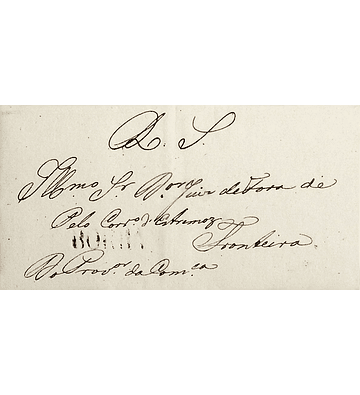 R. S.
Illmo Sr Dor Juiz de Fora de
Pelo Corro d'Estremoz
Fronteira.
Do Provor da Comca